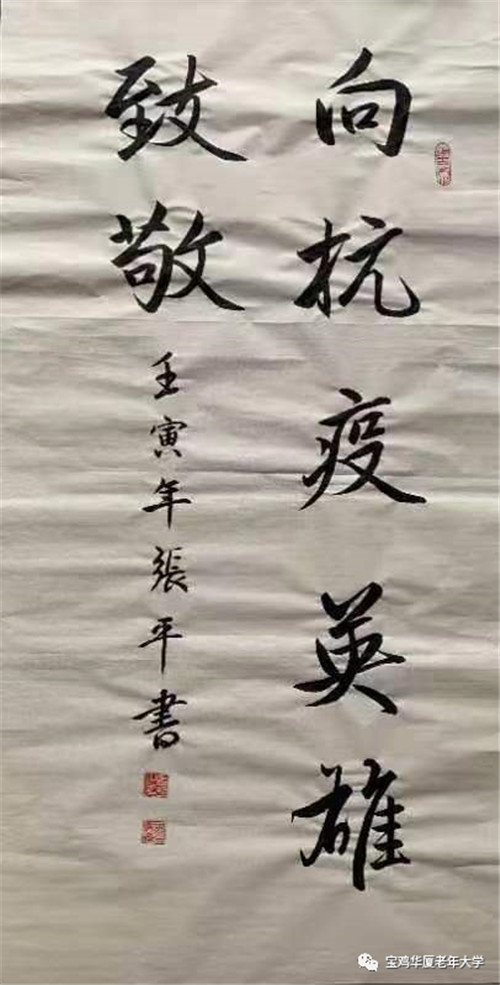 向抗疫英雄
致敬
壬寅年張平書
宝鸡华厦老年大学